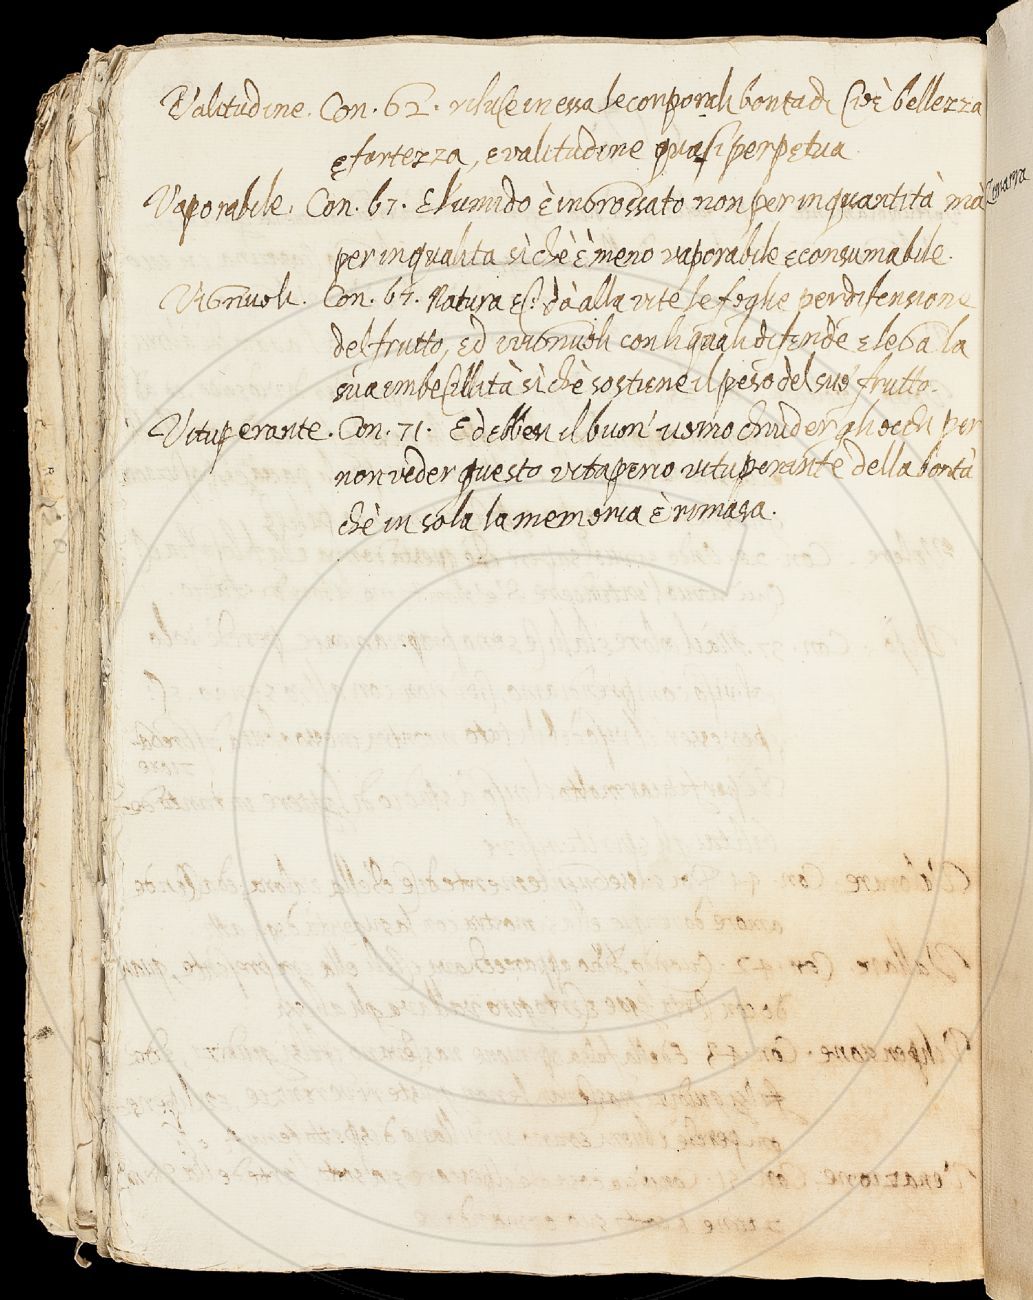 Valitudine. Con. 62. riluce in essa le corporali bontadi cioè bellezza
e fortezza, e valitudine quasi perpetua.
Vaporabile. Con. 67. E l'umido è ingrossato non per inquantità mà
per inqualita sì chè è meno vaporabile e consumabile.
Vignuoli. Con. 67. Natura dà alla vite le foglie per difensione
del frutto, ed i vignuoli con li quali difende e lega la
sua imbecillità sì chè sostiene il peso dèl suo frutto.
Vituperante. Con. 71. E dèbben il buon' uomo chiuder gli occhi per
non veder questo vituperio vituperante dèlla bontà
chè in sola la memoria è rimasa.